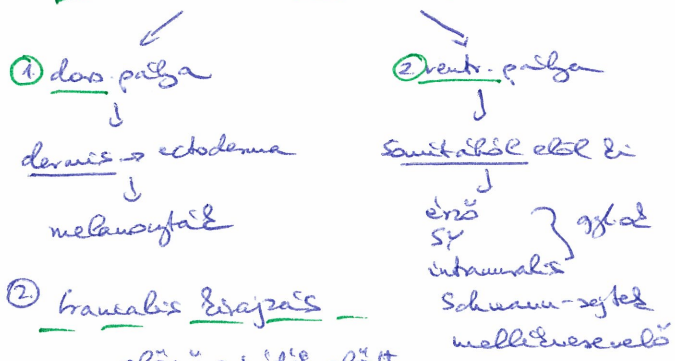 ① dors. pálya
↓
dermis → ectoderma
↓
melanocyták
② ventr. pálya
↓
somitákból elöl ki
↓
érző
SY } ggl-ok
intramuralis
Schwann-sejtek
mellékvesevelő
② truncalis kirajzás